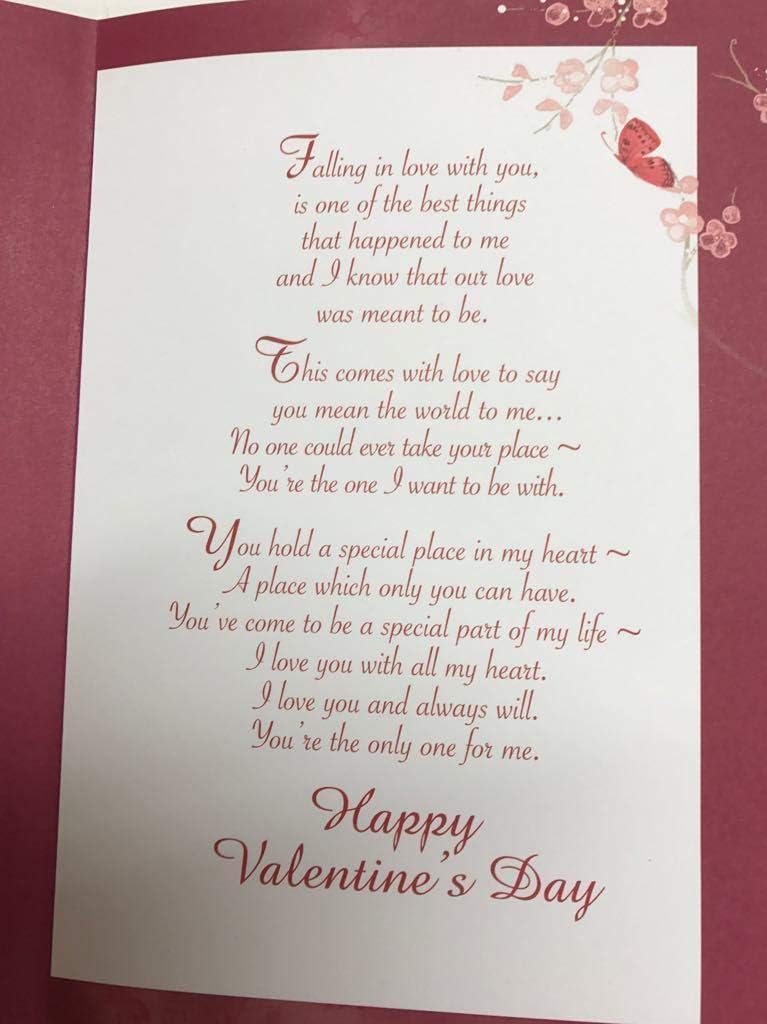 Falling in love with you,
is one of the best things
that happened to me
and I know that our love
was meant to be.
This comes with love to say
you mean the world to me...
No one could ever take your place ~
You're the one I want to be with.
You hold a special place in my heart ~
A place which only you can have.
You've come to be a special part of my life ~
I love you with all my heart.
I love you and always will.
You're the only one for me.
Happy
Valentine's Day